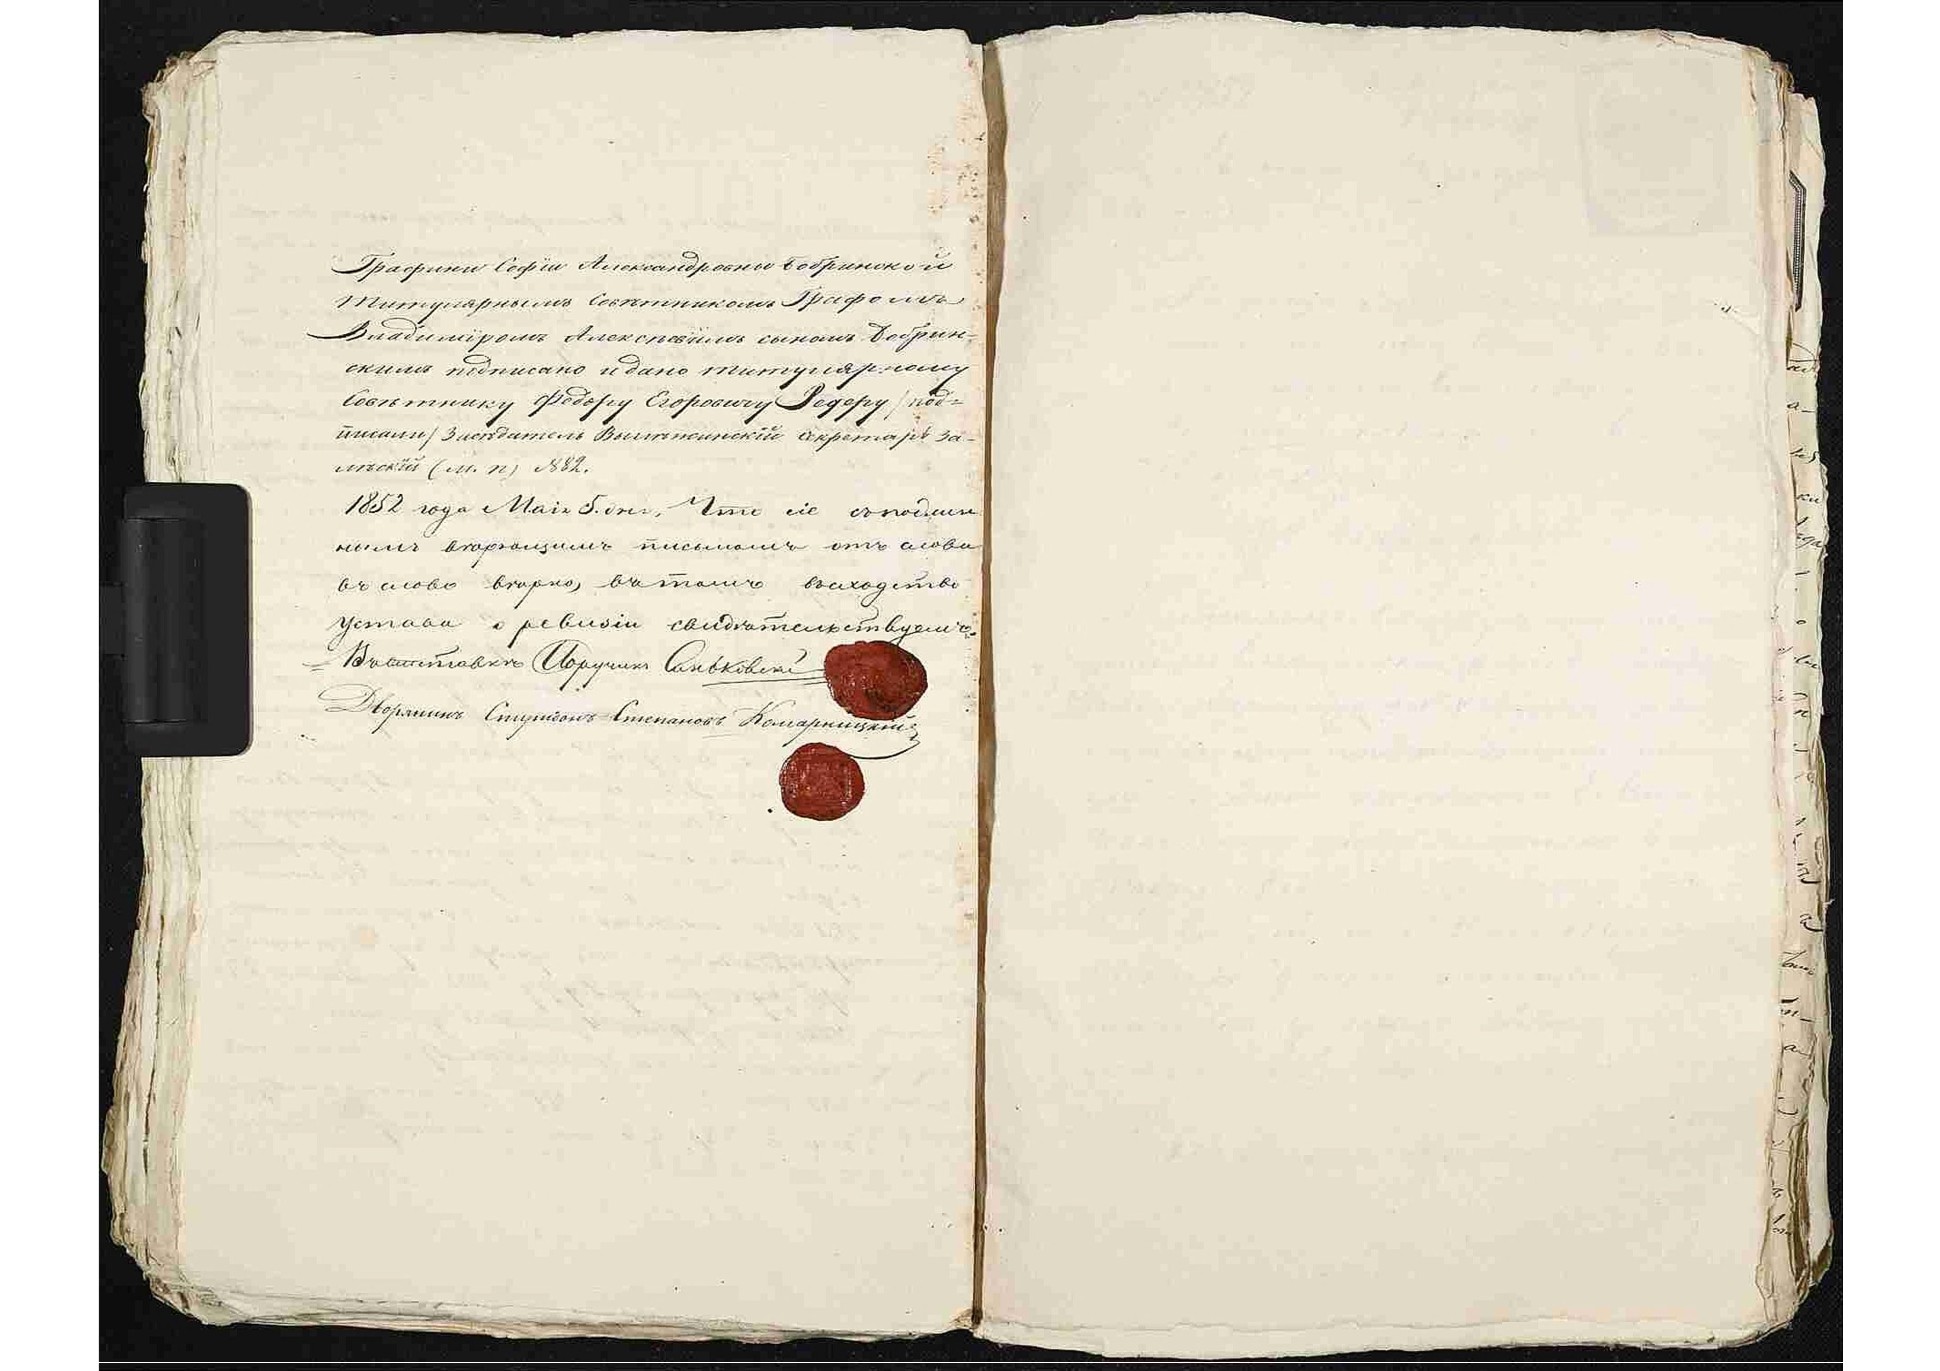 Графини Софіи Александровны Бобринской
Титулярнымъ Совѣтникомъ Графомъ
Владиміромъ Алексѣевымъ сыномъ Бобрин-
скимъ подписано и дано титулярному
Совѣтнику Федору Егоровичу Редеру /под-
писали/ Засѣдатель секретарь За-
лѣскій (м. п) №82.
1852 года Маія 5. дня, Что сіе съ подлин
нымъ вѣрющимъ письмомъ отъ слова
въ слово вѣрно, въ томъ въ сходство
Устава о ревизіи свидѣтельствуемъ.
Въ отставкѣ Поручикъ Саньковскій
Дворянинъ Спиридонъ Степановъ Комарницкій